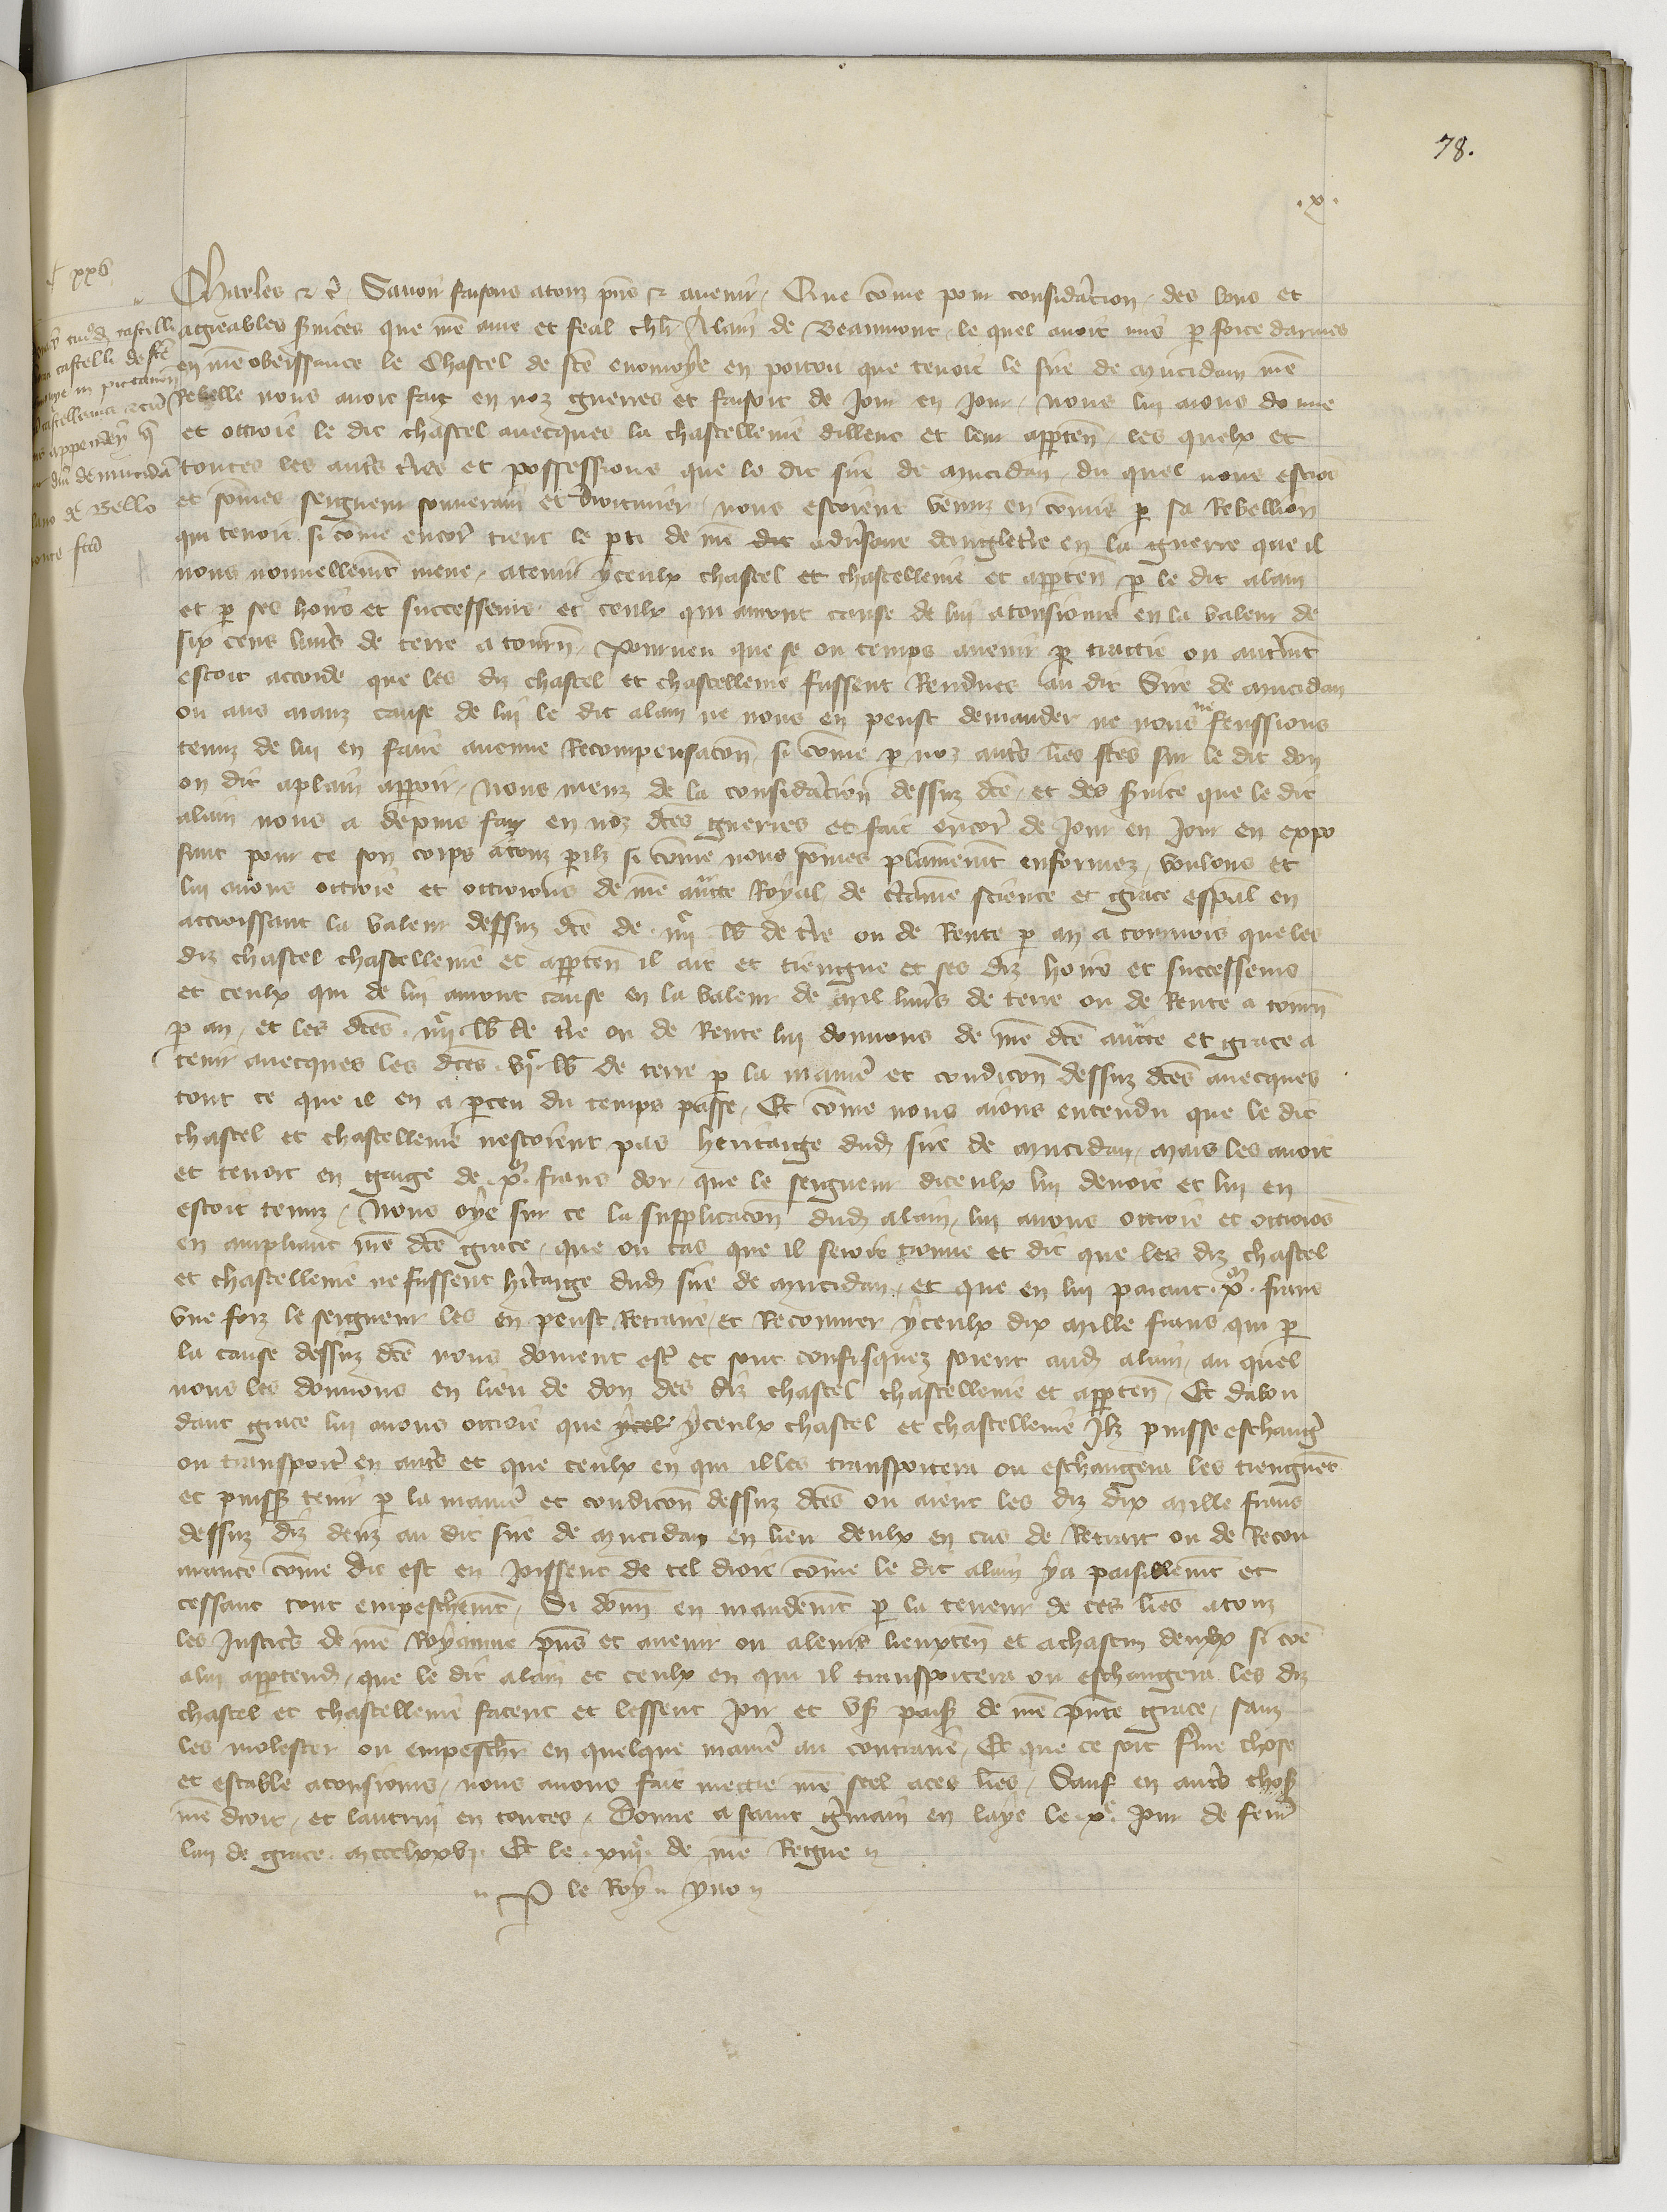 78.
.x.
xxv
castelli
castelli de sce
in pictavon
castellanie
appenden
de mucidā
de Bello
monte fca
Charles &c. Savoir faisons a touz pns & avenir, Que cōme pour consideracion des bons et
agreables svices que nre ame et feal chlr Alain de Beaumont, le quel avoit mis par force darmes
en nre obeissance le Chastel de ste en poitou que tenoit le sire de Mucidam nre
Rebelle nous avoit fait en noz guerres et faisoit de jour en jour, nous lui aions donne
et ottroie le dit chastel avecques la chastellenie dillenc et leur apparten, les quelx et
toutes les autres terres et possessions que le dit sire de Mucidan, du quel nous estiōs
et sōmes seigneur souverain et droiturier, nous estoient venuz en cōmis par sa Rebellion
qui tenoit si cōme encor tient le parti de nre dit adversaire dangleterre en la guerre que il
nous nouvellemēt mene, a tenir yceulx chastel et chastellenie et apparten par le dit alain
et par ses hoirs et successeurs et ceulx qui auront cause de lui a tousiours en la valeur de
six cens livres de terre a tourn, Pourveu que se ou temps avenir par traittie ou autremēt
estoit accorde que les diz chastel et chastellenie fussent Renduts au dit Sire de Mucidan
ou aus aianz cause de lui le dit alain ne nous en peust demander ne nous ne feussions
tenuz de lui en faire aucune Recompensacōn, si cōme par noz autres lres sces sur le dit don
on dit a plain apparoir, Nous meuz de la consideracion dessuz dce, et des svice que le dit
alain nous a depuis fay en noz dces guerres et fait encor de jour en jour en expo
sant pour ce son corps a touz perilz si cōme nous sōmes plainemēt enformez, voulons et
lui avons ottroie et ottroions de nre auctte Royal de ctaine science et grace espāl en
accroissant la valeur dessuz dce de iiijc lb de tre ou de Rente par an a tournois que les
diz chastel chastellenie et apparten il ait et tiengne et ses diz hoirs et successeurs
et ceulx qui de lui auront cause en la valeur de mil livres de terre ou de Rente a tourn
par an, et les dces iiijc lb de tre ou de Rente lui donnons de nre dce auctte et grace a
tenir avecques les dces vjc lb de terre par la manier et condicōn dessuz dces avecques
tout ce que il en a perceu du temps passe, Et cōme nous aions entendu que le dit
chastel et chastellenie nestoient pas heritaige dud sire de Mucidan, Mais les avoit
et tenoit en gaige de xm frans dor, que le seigneur diceulx lui devoit et lui en
estoit tenuz, Nous oye sur ce la supplicacōn dud alain, lui avons ottroie et ottroiōs
en ampliant nre dce grace, que ou cas que il seroit trouve et dit que les diz chastel
et chastellenie ne fussent hitaige dud sire de Mucidan, et que en lui paiant xm frans
une foiz le seigneur les en peust Retraire, et Recouvrer yceulx dix Mille frans qui par
la cause dessuz dce nous doivent estr et sont confisquez soient aud alain, au quel
nous les donnons en lieu de don des diz chastel chastellenie et apparten, Et dabon
dant grace lui avons ottroie que ycel yceulx chastel et chastellenie Ilz puisse eschang
ou transport en autres et que ceulx en qui il les transportera ou eschangera les tiengnēt
et puiss tenir par la manier et condicōn dessuz dces ou aient les diz dix Mille frans
dessuz diz deuz au dit sire de Mucidan en lieu deulx en cas de Retrait ou de Recou
vrance cōme dit est en joissent de tel droit cōme le dit alain y a paisiblemēt et
cessant tout empeschemēt, Si donn en mandemēt par la teneur de ces lres a touz
les Justices de nre Royaume pns et avenir ou a leurs lieuxten et a chascun deulx si cōe
a lui appartend, que le dit alain et ceulx en qui il transportera ou eschangera les diz
chastel et chastellenie facent et lessent joir et us pais de nre pnte grace, sanz
les molester ou empeschr en quelque manier au contraire, Et que ce soit ferme chose
et estable a tousiours, nous avons fait mettre nre scel a ces lres, Sauf en autres chos
nre droit, et lautrui en toutes, Donne a saint germain en laye le xe jour de fevr
lan de grace mccclxxvj Et le xiije de nre Regne
P le Roy yvo